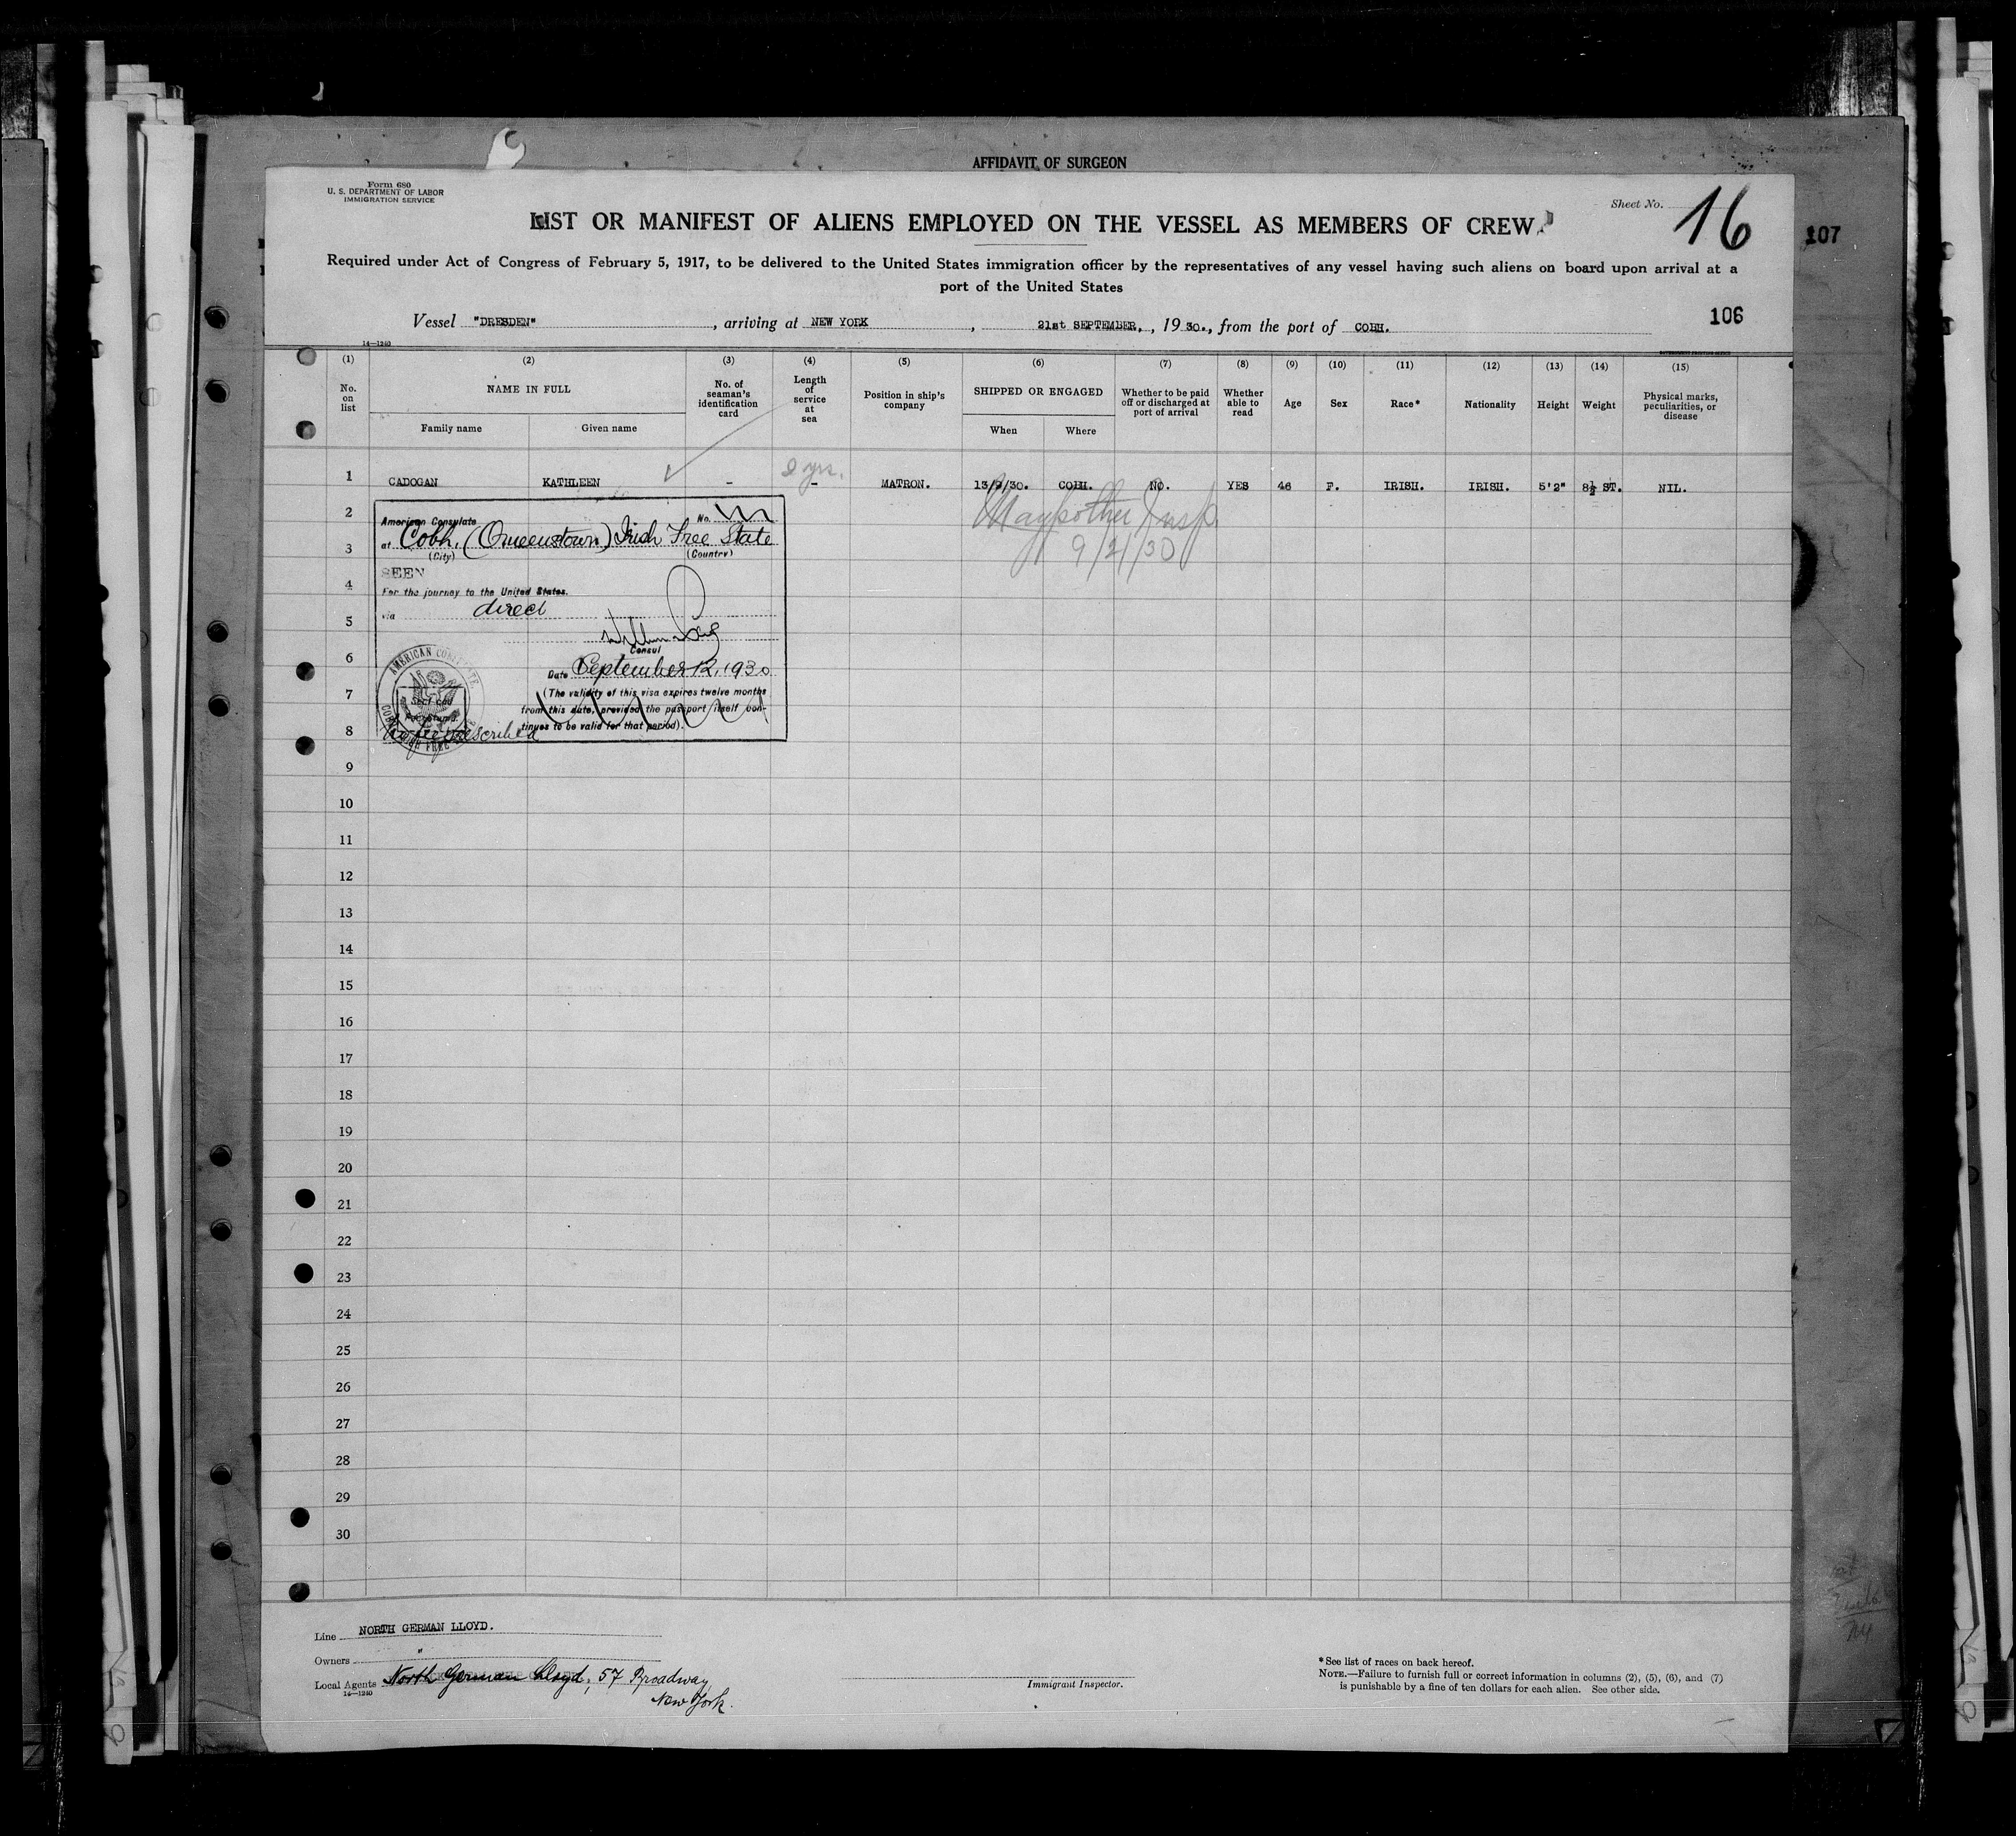 AFFIDAVIT OF SURGEON
Form 680
U. S. DEPARTMENT OF LABOR
IMMIGRATION SERVICE
Sheet No. 16
107
LIST OR MANIFEST OF ALIENS EMPLOYED ON THE VESSEL AS MEMBERS OF CREW
Required under Act of Congress of February 5, 1917, to be delivered to the United States immigration officer by the representatives of any vessel having such aliens on board upon arrival at a
port of the United States
106
Vessel "DRESDEN" , arriving at NEW YORK , 21st SEPTEMBER, , 19 30., from the port of COBH.
14—1240
GOVERNMENT PRINTING OFFICE
(1) (2) (3) (4) (5) (6) (7) (8) (9) (10) (11) (12) (13) (14) (15)
No. on list
NAME IN FULL
Family name
Given name
No. of seaman's identification card
Length of service at sea
Position in ship's company
SHIPPED OR ENGAGED
When
Where
Whether to be paid off or discharged at port of arrival
Whether able to read
Age
Sex
Race*
Nationality
Height
Weight
Physical marks, peculiarities, or disease
1 CADOGAN KATHLEEN - - yrs. MATRON. 13/9/30. COBH. NO. YES 46 F. IRISH. IRISH. 5'2" 8½ ST. NIL.
2
3
4
5
6
7
8
9
10
11
12
13
14
15
16
17
18
19
20
21
22
23
24
25
26
27
28
29
30
Insp.
9/21/30
American Consulate No.
at Cobh, (Queenstown) Irish Free State
(City) (Country)
SEEN
For the journey to the United States.
via direct
Consul
Date September 12, 1930
(The validity of this visa expires twelve months
from this date, provided the passport itself con-
tinues to be valid for that period).
AMERICAN CONSULATE
COBH IRISH FREE STATE
Seal and
Fee Stamp
No fee prescribed
Line NORTH GERMAN LLOYD.
Owners "
Local Agents North German Lloyd, 57 Broadway,
New York.
14—1240
Immigrant Inspector.
*See list of races on back hereof.
NOTE.—Failure to furnish full or correct information in columns (2), (5), (6), and (7)
is punishable by a fine of ten dollars for each alien. See other side.